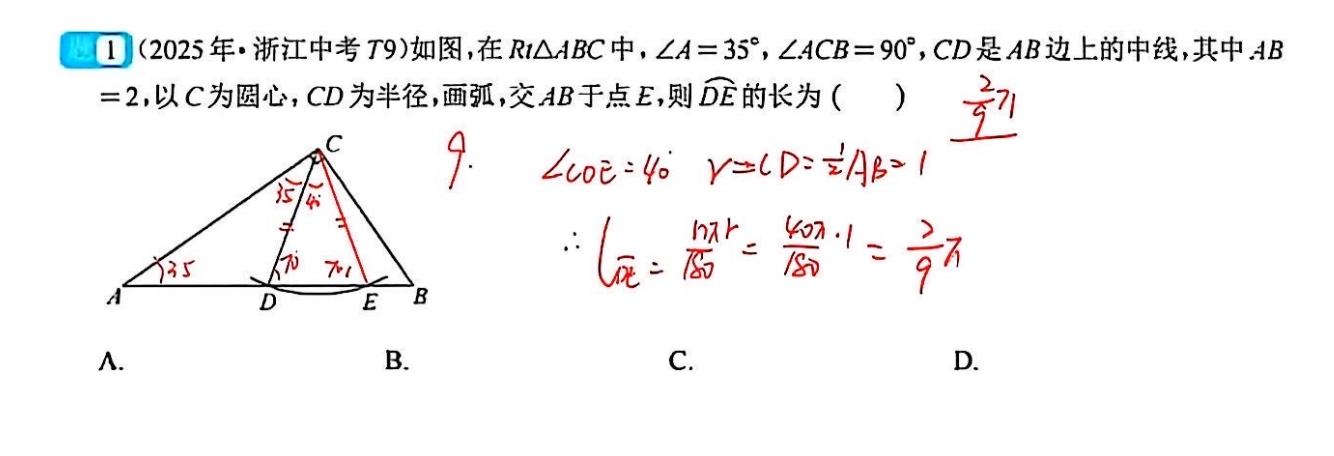 1 (2025年·浙江中考T9)如图,在Rt△ABC中,∠A=35°,∠ACB=90°,CD是AB边上的中线,其中AB
=2,以C为圆心,CD为半径,画弧,交AB于点E,则DE的长为( ) 2/9 π
C
9. ∠COE=40° r=CD=1/2AB=1
35 40
∴ l DE = nπr/180 = 40π·1/180 = 2/9 π
35 70 70
A D E B
A. B. C. D.